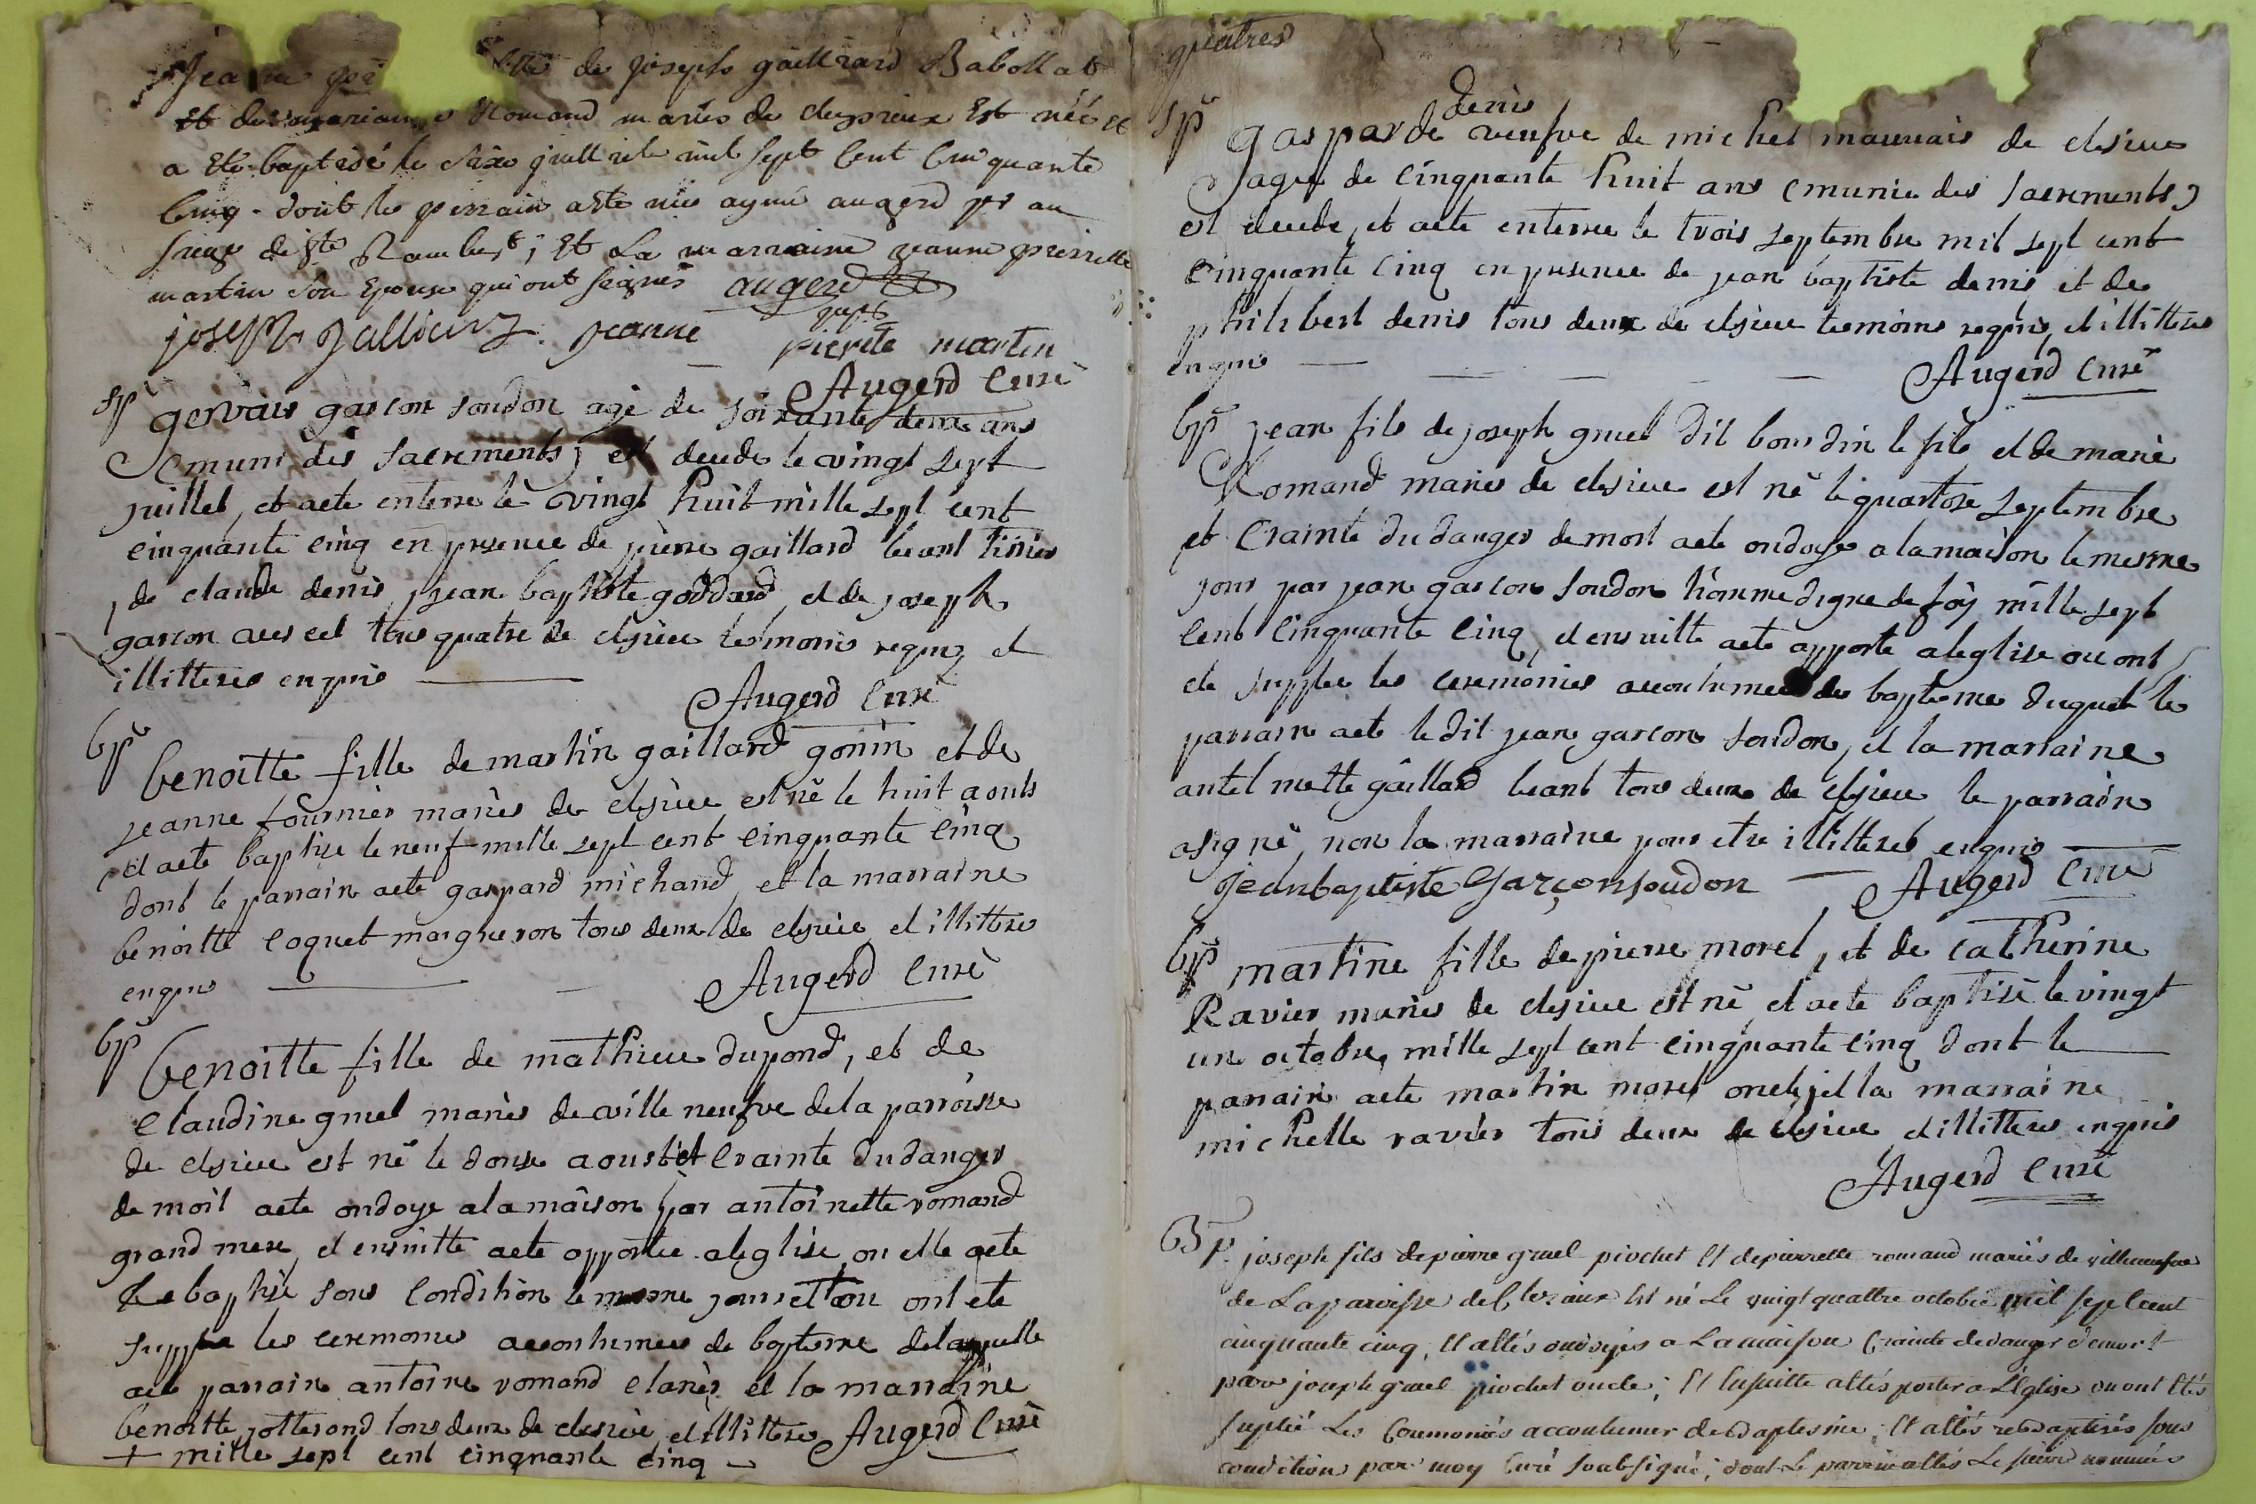 Jeanne fille de joseph gaillard Babollat
Et de mariane Romand mariés de cleyzieux Est néé et
a Ete baptisé le seize juilliet mil sept Cent Cinquante
Cinq. dont le perrain a ete mre aymé augerd pr au
siege de St Rambert; Et La marraine jeanne pierrette
martin son Epouse qui ont signés augerd
joseph Jallioux. jeanne pierete martin
Augerd Curé
Sp gervais garcon soudon agé de soixante deux ans
(muni des sacrements) est decede le vingt sept
juillet, et aete enterre le vingt huit mille sept cent
cinquante cinq en presence de pierre gaillard beant
de claude denis, jean baptiste goddard, et de joseph
garcon tous quatre de clesieu temoins requis et
illitteres enquis
Augerd Curé
bp benoitte fille de martin gaillard gonin et de
jeanne fournier mariés de clesieu est né le huit aoust
et aete baptise le neuf mille sept cent cinquante cinq
dont le parrain aete gaspard michaud, et la marraine
benoitte coquet maigneron tous deux de clesieu et illittere
enquis Augerd Curé
bp benoitte fille de mathieu dupond, et de
Claudine gruel mariés de ville neufve de la parroisse
de clesieu est né le douse aoust + et crainte du danger
de mort aete ondoye a la maison par antoinette romand
grand mere, et ensuitte aete apportee a leglise ou elle aete
Rebaptise sous condition le mesme jour et ou ont ete
supplee les ceremonies accoutumees de bapteme de laquelle
aete parrain antoine romand et la marraine
benoitte tous deux de clesieu et illitteres Augerd Curé
+ mille sept cent cinquante cinq
quatres
Sp gasparde denis veufve de michel mauvais de clesieu
agee de cinquante huit ans (munie des sacrements)
est decede, et aete enterree le trois septembre mil sept cent
cinquante cinq en presence de jean baptiste denis et de
philibert denis tous deux de clesieu temoins requis, et illitteres
enquis
Augerd Curé
bp jean fils de joseph gruel dit bourdin le fils et de marie
Romand mariés de clesieu est né le quattorse septembre
et crainte du danger de mort aete ondoye a la maison le mesme
jour par jean garcon soudon homme digne de foy mille sept
cent cinquante cinq, et ensuitte aete apporte a leglise ou ont
ete supplee les ceremonies accoutumees de bapteme duquel le
parrain aete le dit jean garcon soudon, et la marraine
antelmette gaillard beant tous deux de clesieu le parrain
a signé, non la marraine pour etre illitteree enquis
Jeanbaptiste Garçonsoudon Augerd Curé
bp martine fille de pierre morel, et de catherine
Ravier mariés de clesieu est né et aete baptisé le vingt
un octobre mille sept cent cinquante cinq dont le
parrain aete martin morel oncle, et la marraine
michelle ravier tous deux de clesieu et illitteres enquis
Augerd Curé
Bp. joseph fils de pierre gruel piochet Et de pierrette romand mariés de villeneufve
de La paroisse de Cleyzieux Est né Le vingt quattre octobre mil sept cent
cinquante cinq, Et a Etés ondoyés a La maison Crainte de danger de mort
par joseph gruel piochet oncle; Et Ensuitte a Etés porter a L'Eglise ou ont Etés
suplié Les Ceremoniés accoutumer de Baptesme; Et a Etés reBaptisés sous
condition par moy Curé soubsigné; dont Le parrain a Etés Le susnommés